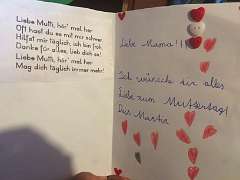 Liebe Mutti, hör' mal her
Oft hast du es mit mir schwer
Hilfst mir täglich, ich bin froh,
Danke für alles, lieb dich so!
Liebe Mutti, hör' mal her
Mag dich täglich immer mehr!
Liebe Mama!!!
Ich wünsche dir alles
Liebe zum Muttertag!
Dein